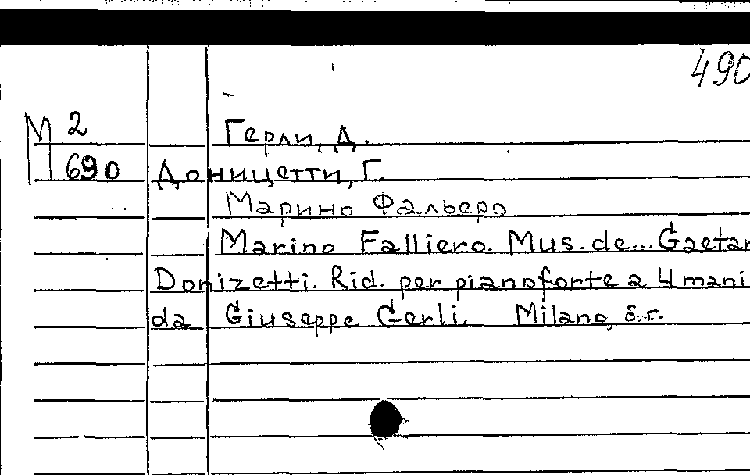 490
М 2 Герли, Д.
690 Доницетти, Г.
Марино Фальеро
Marino Falliero. Mus. de... Gaetan
Donizetti. Rid. per pianoforte a 4 mani
da Giuseppe Gerli. Milano, б.г.